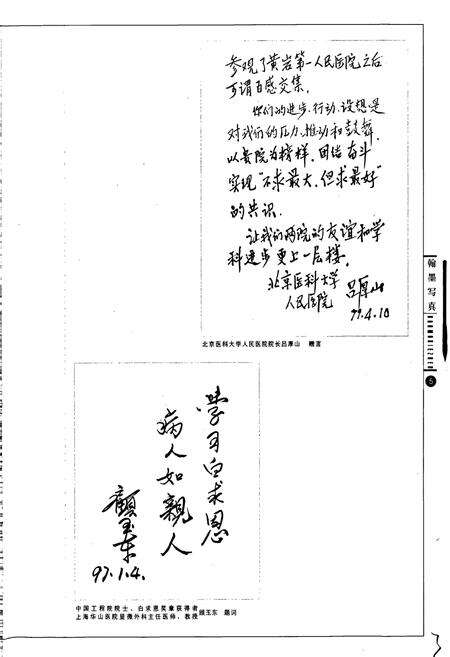 参观了黄岩第一人民医院之后
可谓百感交集。
你们的进步、行动、设想是
对我们的压力、推动和鼓舞。
以贵院为榜样，团结奋斗
实现“不求最大，但求最好”
的共识。
让我们两院的友谊和学
科进步更上一层楼。
北京医科大学
人民医院 吕厚山
97.4.10
北京医科大学人民医院院长吕厚山 赠言
翰墨写真
5
学习白求恩
病人如親人
顧玉东
97.1.4.
中国工程院院士、白求恩奖章获得者
上海华山医院显微外科主任医师、教授 顾玉东 题词